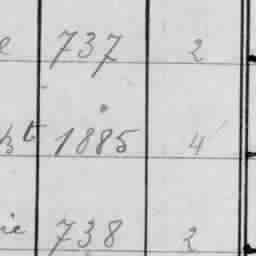 e 737 2
ht 1885 4
ie 738 2